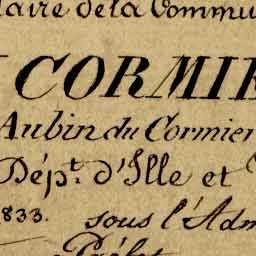 laire de la Commu
CORMIE
Aubin du Cormier
Dép.t d'Ille et
1833. sous l'Adm
Préfet